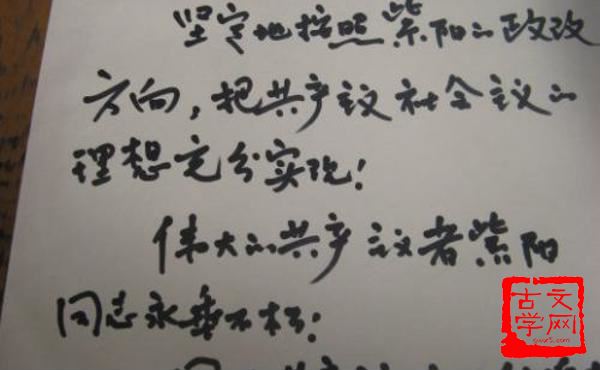 坚定地按照紫阳的政改
方向，把共产议社会议的
理想充分实现！
伟大的共产议者紫阳
同志永垂不朽！
古文
学网